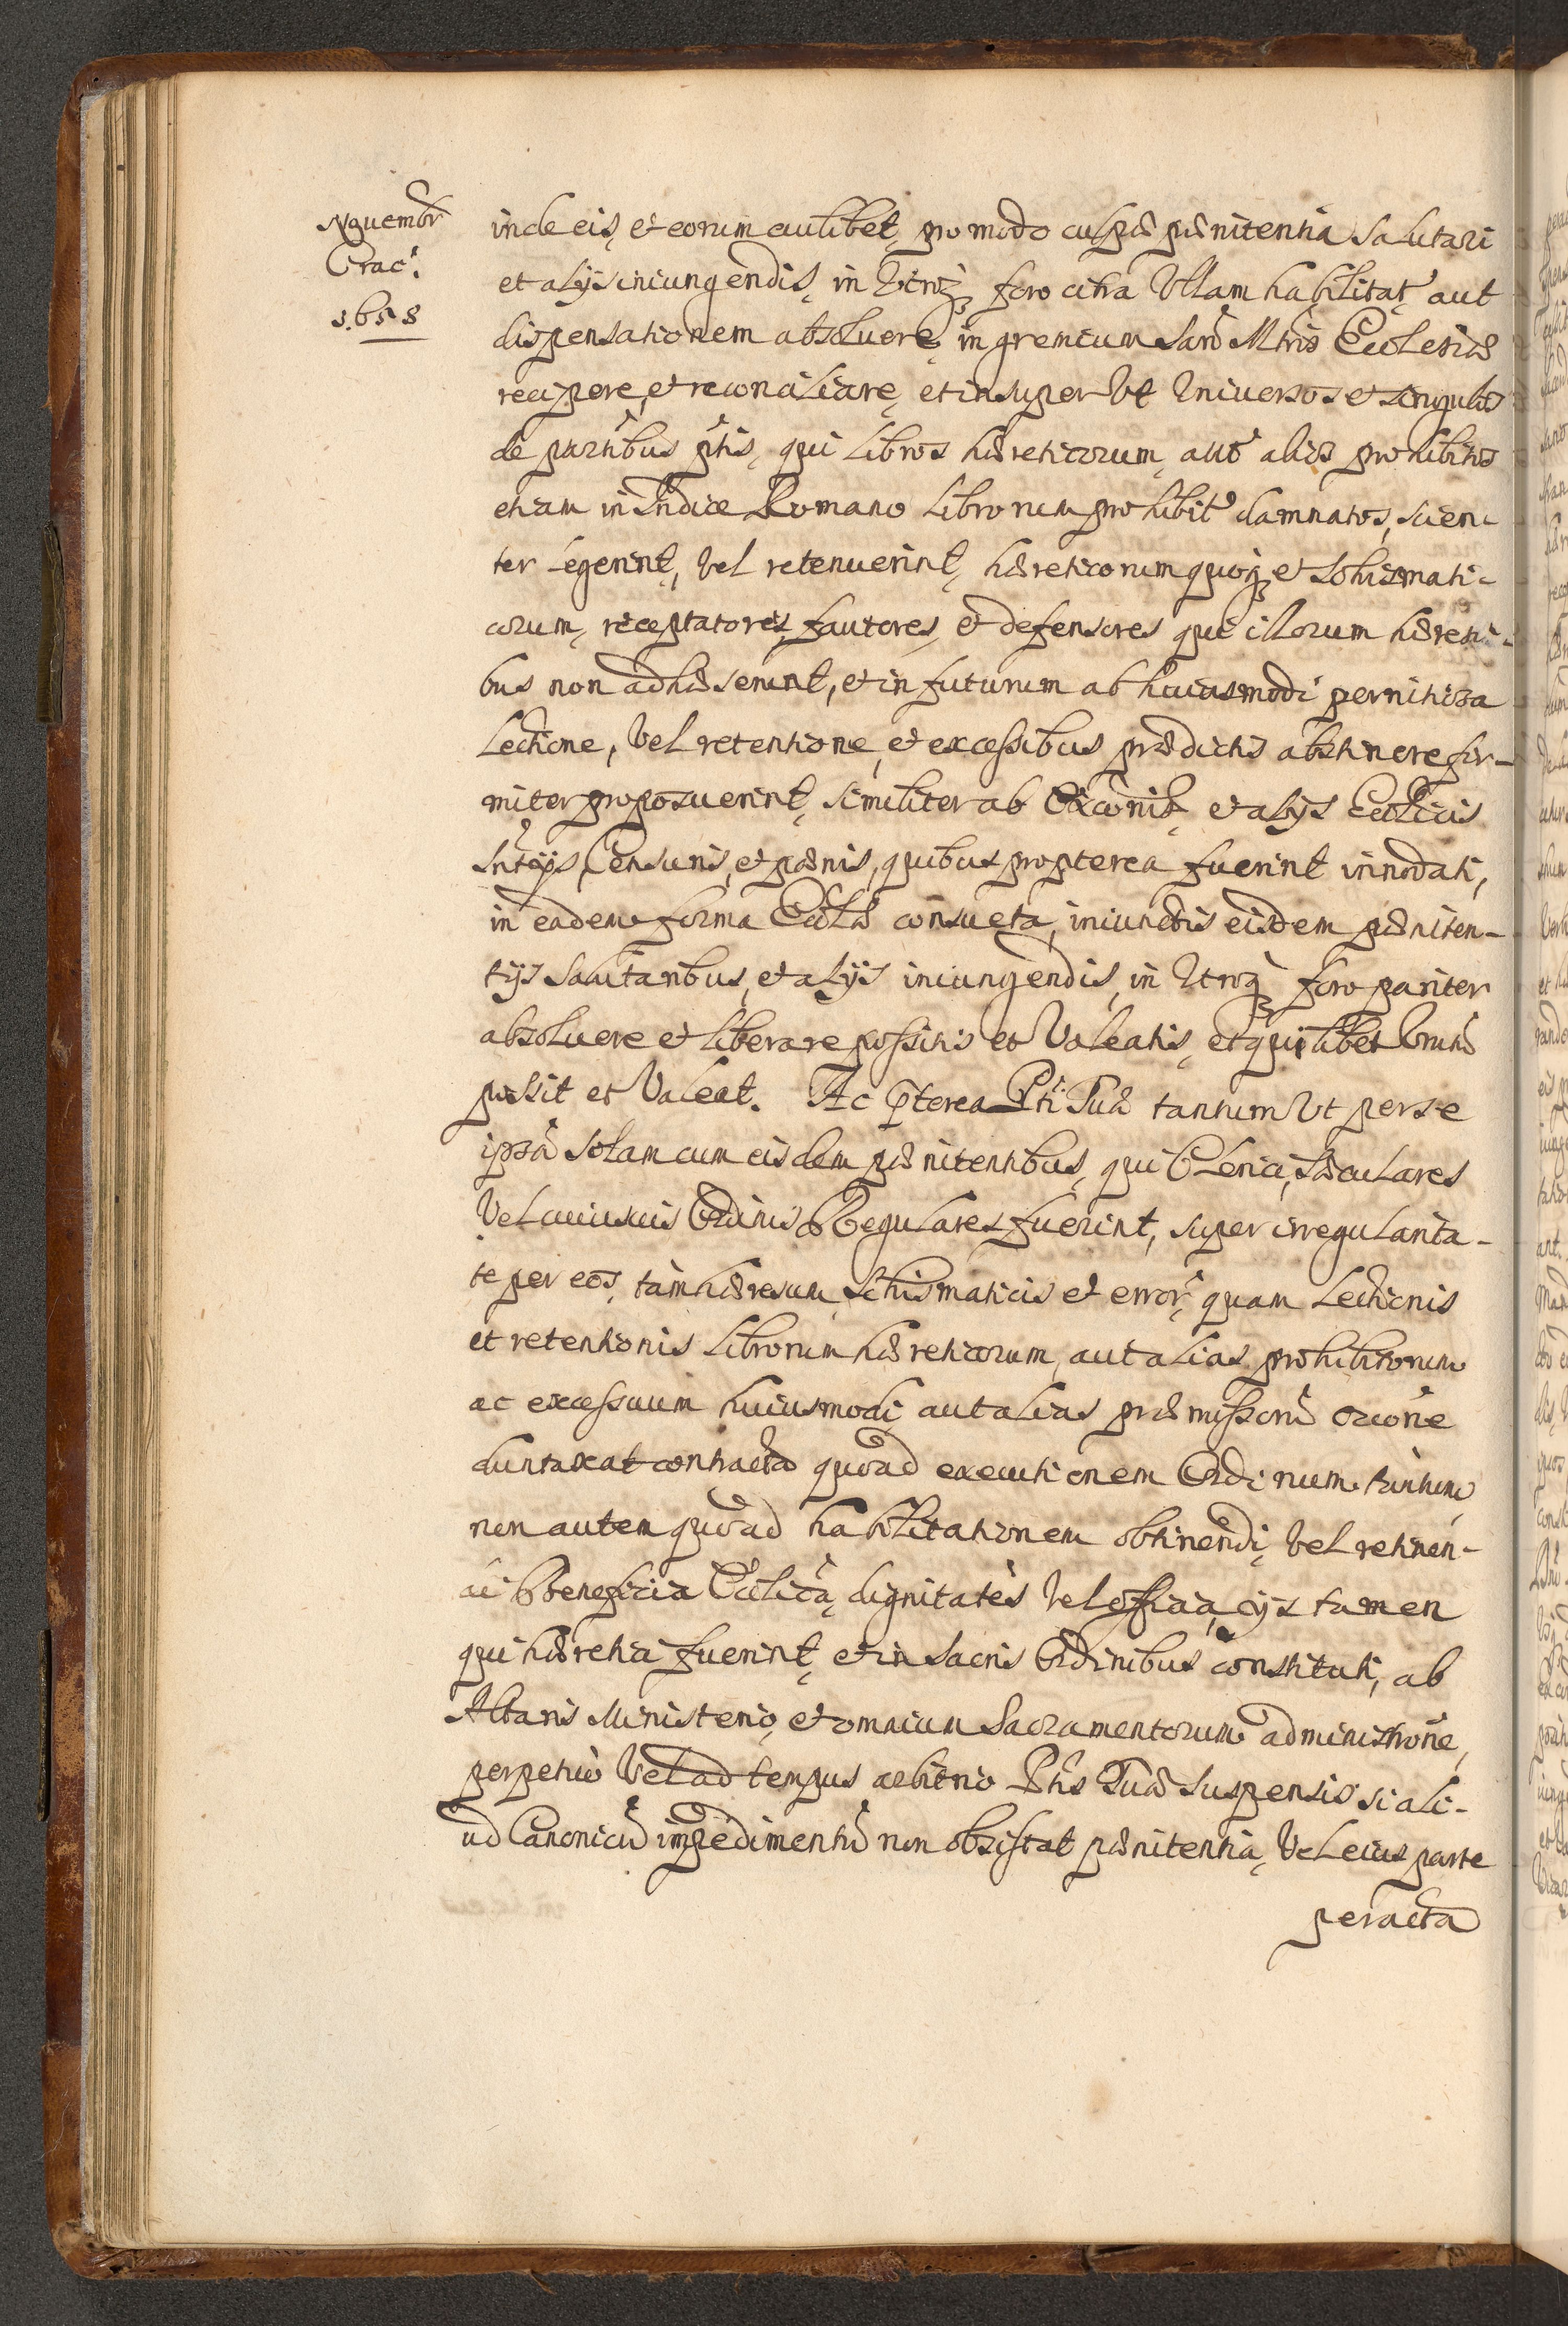 Nouembr
Crac:
1658
inde eis, et eorum cuilibet, pro modo culpæ pœnitentia salutari
et alijs iniungendis, in Vtroq; foro citra Vllam habilitat: aut
dispensationem absoluere, in gremium Sanò Mtris Ecclesiæ
recipere, et reconciliare, et insuper Vt Vniuersos et singulos
de partibus ptis, qui libros hæreticorum, aut alios prohibitos
etiam in Indice Romano Librorum prohibit: damnatos, scien-
ter legerint, vel retenuerint, hæreticorum quoq; et Schismati-
corum, receptatores, fautores, et defensores qui illorum hæresi-
bus non adhæserunt, et in futurum ab huiusmodi pernitiosa
Lectione, Vel retentione, et excessibus prædictis abstinere fir-
miter proposuerint, similiter ab Exconib; et alijs Ecclicis
Sntijs, Censuris, et pœnis, quibus propterea fuerint innodati,
in eadem forma Ecclæ consueta, iniunctis eisdem pœniten-
tijs salutaribus, et alijs iniungendis, in Vtroq; foro pariter
absoluere et liberare possitis et Valeatis, et quilibet Vrum
possit et Valeat. Ac pterea Pti Tuæ tantum Vt per se
ipsã solam cum eisdem pœnitentibus, qui Clerici, sæculares
Vel cuiusuis Ordinis Regulares fuerint, super irregularita-
te per eos, tàm hæresum, Schismaticis et error: quam Lectionis
et retentionis Librorum hæreticorum, aut alias prohibitorum
ac excessuum huiusmodi, aut alias præmissorũ occone
duntaxat contracta quoad executionem Ordinum tantum,
non autem quoad habilitationem obtinendi, Vel retinen-
di Beneficia Ecclica, dignitates Vel officia, ijs tamen
qui hæretici fuerint, et in sacris Ordinibus constituti, ab
Altaris Ministerio, et omnium Sacramentorum administrone,
perpetuò Vel ad tempus arbitrio Ptis Tuæ suspensis si ali-
ud Canonicũ impedimentũ non obsistat pœnitentia, Vel eius parte
peracta